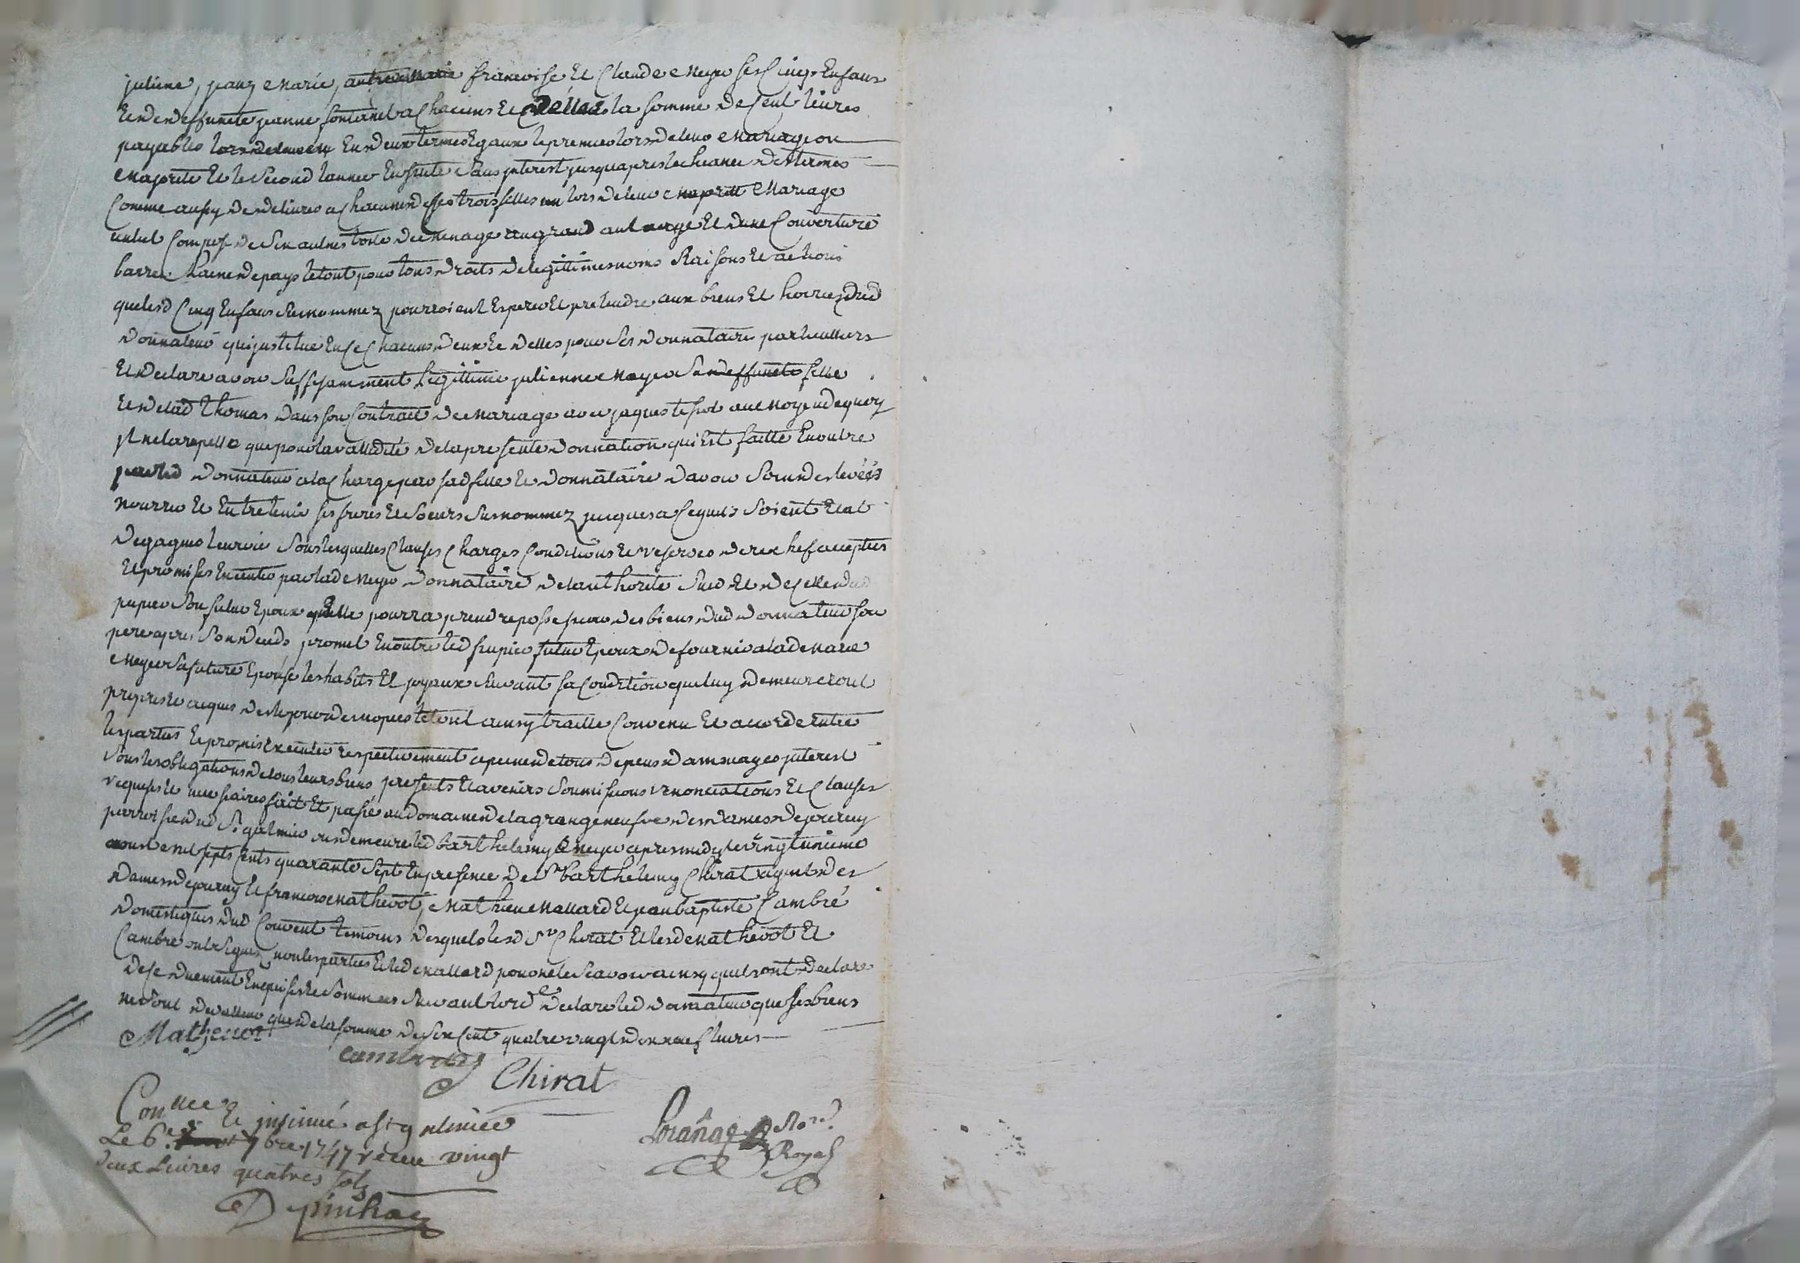 julienne, jean, Marie, françoise Et Claude Neyer ses Cinq Enfans
Et de deffuncte jeanne fontanel a Chacuns Et delles la somme de Cent livres
payables En deux termes Egaux le premier lors de leur Mariage ou
Majorité Et le second l'année Ensuite sans jnterest jusqu'apres lecheance desd termes
Comme aussy de delivrer a Chacune de ses trois filles lors de leur Mariage
un lit Composé de six aulnes toile de menage Et dune Couverture
laine de pays le tout pour tous droits de legittimes noms Raisons Et actions
que lesd Cinq Enfans susnommez pourroient Esperer Et pretendre aux biens Et hoirie dud
donnateur qui jnstitue En Ce Chacuns deux Et delles pour ses donnataires particulliers
Et declare avoir suffisamment Legittimé julienne Neyer sa fille
Et de lad Thomas dans son Contrait de Mariage avec jaques au Moyen de quoy
jl ne la rapelle que pour la vallidité de la presente donnation qui Est faitte En outre
par led donnateur a la Charge par sad fille Et donnataire d'avoir soin d'eslever
nourrir Et Entretenir ses freres Et soeurs susnommez jusques a Ce quils soient En Etat
de gagner leur vie sous lesquelles Clauses Charges Conditions Et reserves derechef acceptées
Et promises Executer par lad Neyer donnataire de lauthorité susd Et de Celle dud
pupier son futur Epoux quelle pourra prendre possession des biens dud donnateur son
pere apres son deceds promet En outre led pupier futur Epoux de fournir a lad Marie
Neyer sa future Epouse les habits Et joyaux suivant sa Condition qui luy demeureront
propres Et acquis des le jour des nopces le tout ainsy traitté Convenu Et accordé Entre
les parties Et promis Executer respectivement a peine de tous depens dommages jnterest
sous les obligations de tous leurs biens presents Et avenirs soumissions renonciations Et Clauses
requises Et necessaires fait Et passé au domaine de la grange neufve des dames de jourcey
parroisse dud St galmier ou demeure led barthelemy Neyer apres midy le vingt unieme
aoust mil sept Cents quarante sept En presence de Sr barthelemy Chirat agent des
dames de jourcey Et françois Mathevot, Mathieu Mallard Et jean baptiste Cambré
domestiques dud Couvent temoins desquels led Sr Chirat Et lesd Mathevot Et
Cambre ont signé non les parties Et led Mallard pour ne le scavoir ainsy quils ont declaré
de ce duement Enquis Et sommes suivant lord.ce declare led donnateur que ses biens
ne sont de valleur que de la somme de six Cent quatre vingt dix neuf livres
Mathevot
Cambre
Chirat
Con.llee Et insinué a St galmier
Le 6e 7bre 1747 receu vingt
deux Livres quatres sols
Depinhac
Lorange Nore.
Royal